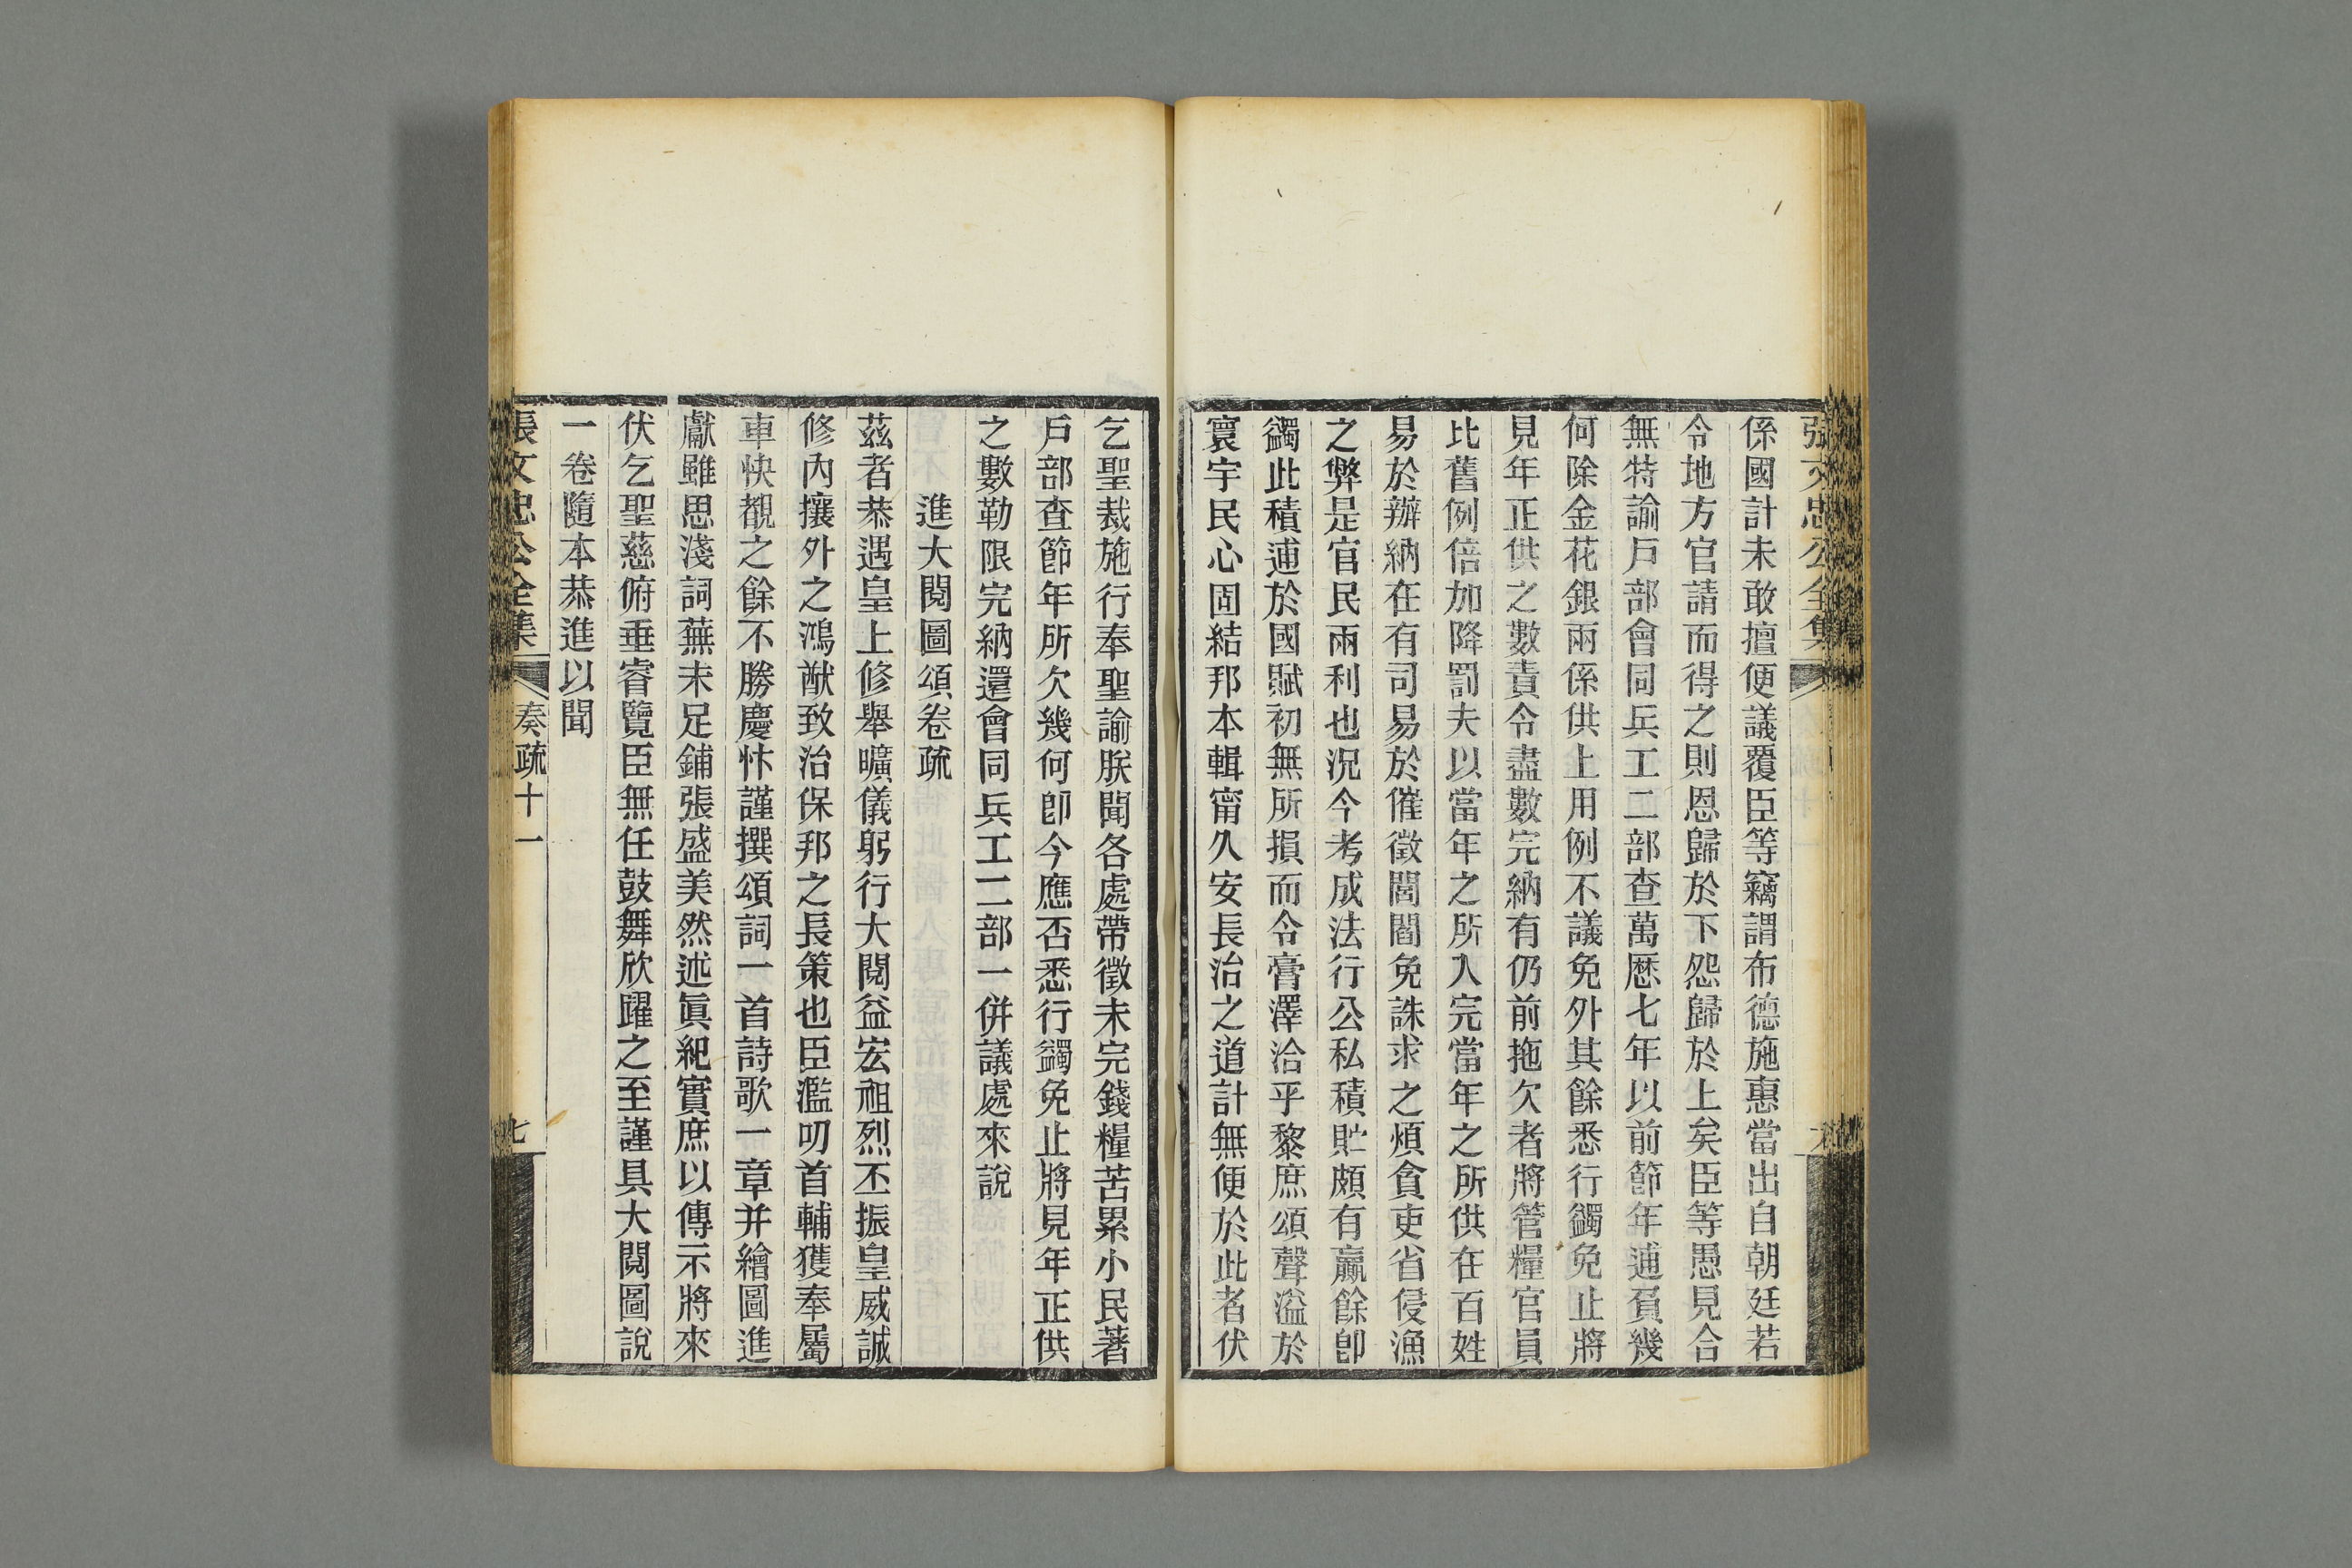 張文忠公全集
係國計未敢擅便議覆臣等竊謂布德施惠當出自朝廷若
令地方官請而得之則恩歸於下怨歸於上矣臣等愚見合
無特諭戶部會同兵工二部查萬歷七年以前節年逋負幾
何除金花銀兩係供上用例不議免外其餘悉行蠲免止將
見年正供之數責令盡數完納有仍前拖欠者將管糧官員
比舊例倍加降罰夫以當年之所入完當年之所供在百姓
易於辦納在有司易於催徵閭閻免誅求之煩貪吏省侵漁
之弊是官民兩利也況今考成法行公私積貯頗有贏餘卽
蠲此積逋於國賦初無所損而令膏澤洽乎黎庶頌聲溢於
寰宇民心固結邦本輯甯久安長治之道計無便於此者伏
乞聖裁施行奉聖諭朕聞各處帶徵未完錢糧苦累小民著
戶部查節年所欠幾何卽今應否悉行蠲免止將見年正供
之數勒限完納還會同兵工二部一併議處來說
進大閱圖頌卷疏
茲者恭遇皇上修舉曠儀躬行大閱益宏祖烈丕振皇威誠
修內攘外之鴻猷致治保邦之長策也臣濫叨首輔獲奉屬
車快覩之餘不勝慶忭謹撰頌詞一首詩歌一章并繪圖進
獻雖思淺詞蕪未足鋪張盛美然述眞紀實庶以傳示將來
伏乞聖慈俯垂睿覽臣無任鼓舞欣躍之至謹具大閱圖說
一卷隨本恭進以聞
張文忠公全集 奏疏十一 七